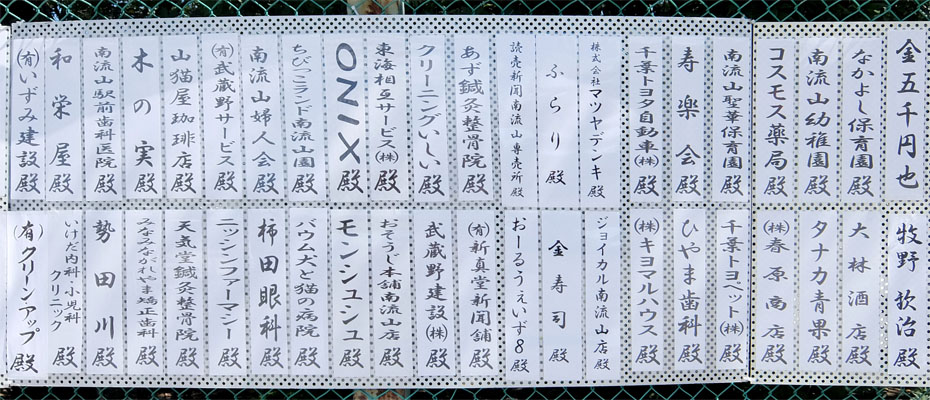 金五千円也
なかよし保育園殿
南流山幼稚園殿
コスモス薬局殿
南流山聖華保育園殿
寿楽会殿
千葉トヨタ自動車㈱殿
株式会社マツヤデンキ殿
ふらり殿
読売新聞南流山専売所殿
あず鍼灸整骨院殿
クリーニングいしい殿
東海相互サービス㈱殿
ONIX殿
ちびっこランド南流山園殿
南流山婦人会殿
㈲武蔵野サービス殿
山猫屋珈琲店殿
木の実殿
南流山駅前歯科医院殿
和栄屋殿
㈲いずみ建設殿
牧野 治殿
大林酒店殿
タナカ青果殿
㈱春原商店殿
千葉トヨペット㈱殿
ひやま歯科殿
㈱キヨマルハウス殿
ジョイカル南流山店殿
金寿司殿
おーるうぇいず8殿
㈲新真堂新聞舗殿
武蔵野建設㈱殿
おそうじ本舗南流山店殿
モンシュシュ殿
バウム犬と猫の病院殿
柿田眼科殿
ニッシンファーマシー殿
天気堂鍼灸整骨院殿
みなみながれやま矯正歯科殿
勢田川殿
いけだ内科・小児科
クリニック殿
㈲クリーンアップ殿